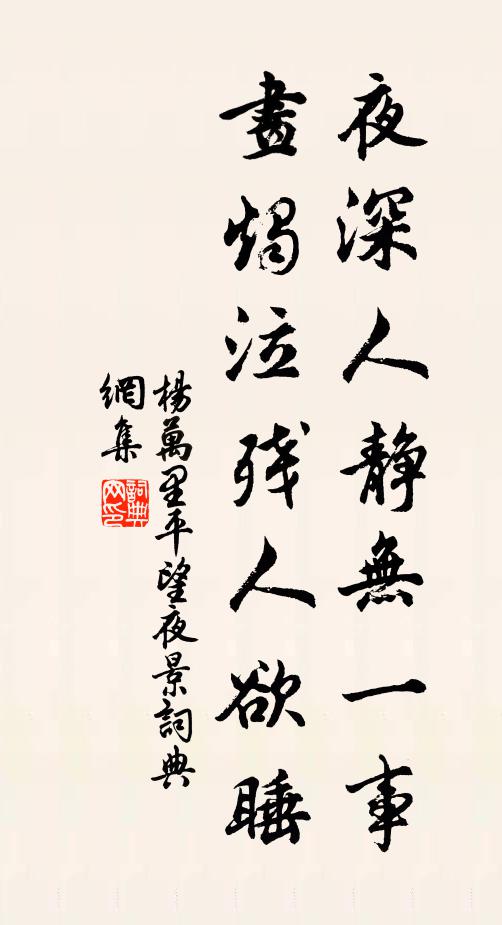 夜深人静無一事
畫燭泣残人欲睡
楊萬里平望夜景詞典
網集
詞典